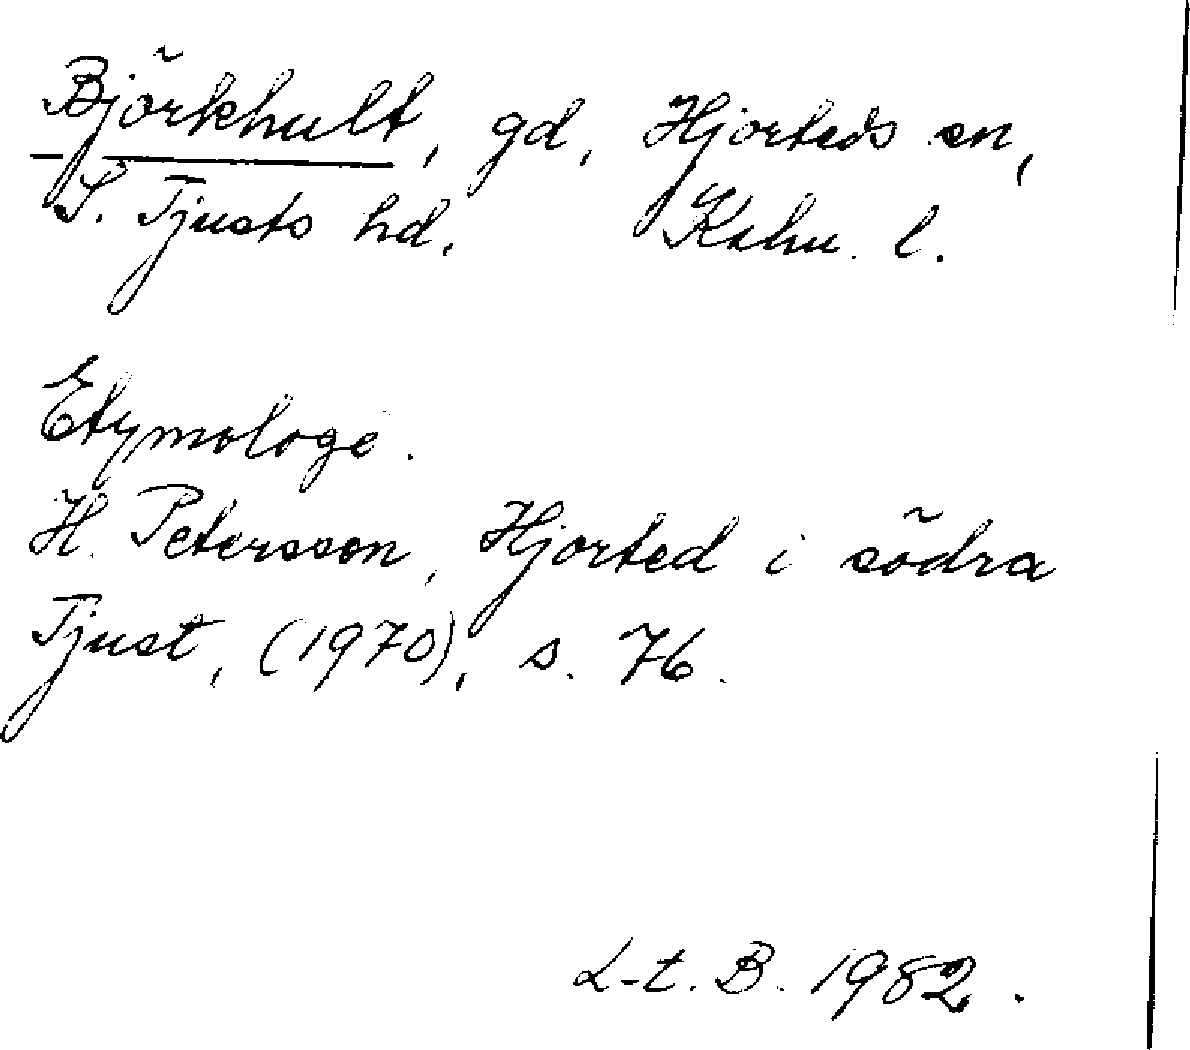 Björkhult, gd, Hjorteds sn,
S. Tjusts hd. Kalm. l.
Etymologi.
H. Petersson, Hjorted i södra
Tjust, (1970), s. 76.
L-t. B. 1982.